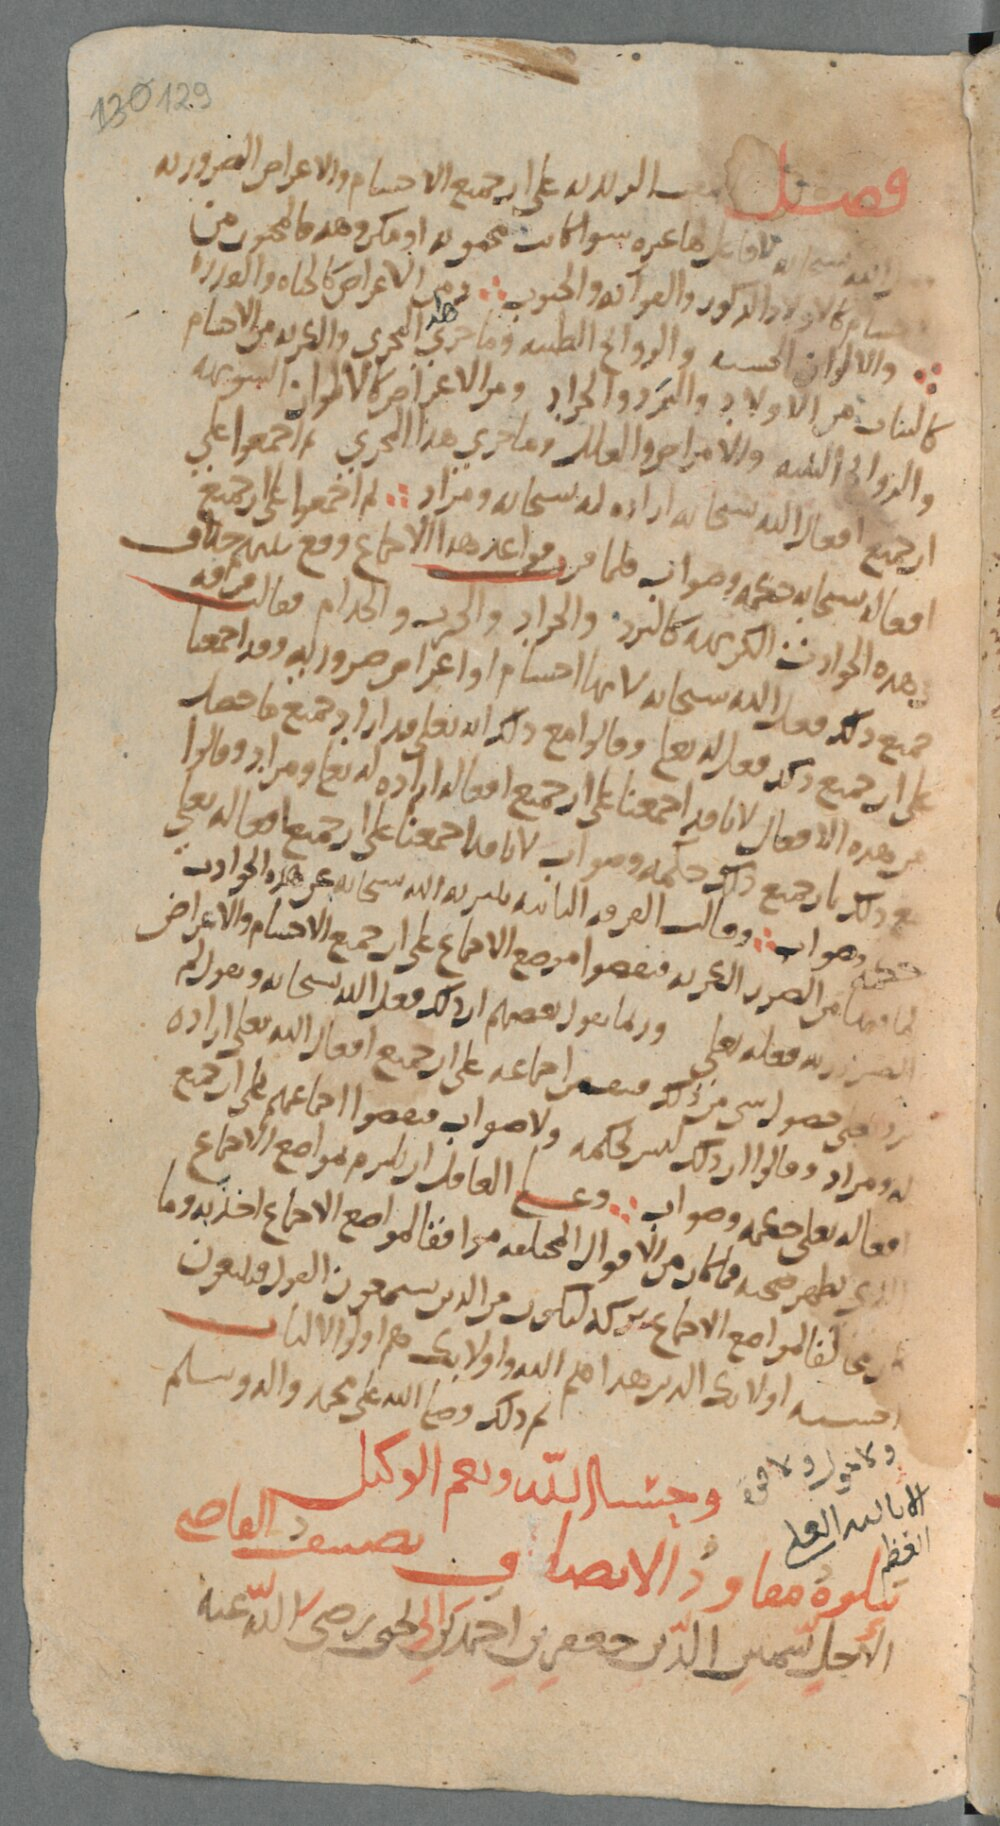 130 129
فصل الزيدية على ان جميع الاجسام والاعراض الضرورية
لا فاعل لها غيره سوا كانت محبوبة او مكروهة فالمحبوب من
كالاولاد الذكور والفواكه والحبوب ومن الاعراض كالحياه والقدرة
والالوان الحسنه والروائح الطيبه وما جرى هذا المجرى والكريه من الاجسام
كالبنات من الاولاد والبرد والجراد ومن الاعراض كالالوان الشويهه
والروائح والامراض والعلل وما جرى هذا المجرى ثم اجمعوا على
ان جميع افعال الله سبحانه اراده له سبحانه ومراد ثم اجمعوا على ان جميع
افعاله سبحانه حكمه وصواب فلما قواعد هذا الاجماع وقع بينهم خلاف
في هذه الحوادث الكريهه كالبرد والجراد والجرب والجذام فقالت فرقه
جميع ذلك فعل الله سبحانه لانها اجسام او اعراض ضروريه وقد اجمعنا
على ان جميع ذلك فعل له تعالى وقالوا مع ذلك انه تعالى قد اراد جميع ما حصل
من هذه الافعال لانا قد اجمعنا على ان جميع افعاله اراده له تعالى ومراد وقالوا
مع ذلك بان جميع ذلك حكمه وصواب لانا قد اجمعنا على ان جميع افعاله تعالى
حكمه وصواب وقالت الفرقه الثانيه بتنزيه الله سبحانه عن هذه الحوادث
لما فيها من الضرر فنقضوا موضع الاجماع على ان جميع الاجسام والاعراض
الضروريه فعله تعالى وربما يقول بعضهم ان ذلك فعل الله سبحانه ويقول لم
يرد تعالى حصول شي من ذلك فنقض اجماعه على ان جميع افعال الله تعالى اراده
له ومراد وقالوا ان ذلك ليس لحكمه ولا صواب فنقضوا اجماعهم على ان جميع
افعاله تعالى حكمه وصواب وعلى العاقل ان يلتزم بمواضع الاجماع
الذي تظهر صحته فما كان من الاقوال المختلفه موافقا لمواضع الاجماع اخذ به وما
كان مخالفا لمواضع الاجماع تركه ليكون من الذين يستمعون القول فيتبعون
احسنه اولائك الذين هداهم الله واولائك هم اولوا الالباب
تم ذلك وصلى الله على محمد واله وسلم
ولا حول ولا قوه
وحسبنا الله ونعم الوكيل
الا بالله العلي
العظيم
يتلوه مقاود الانصاف تصنيف القاضي
الاجل شمس الدين جعفر بن احمد بن ابي يحيى رضي الله عنه